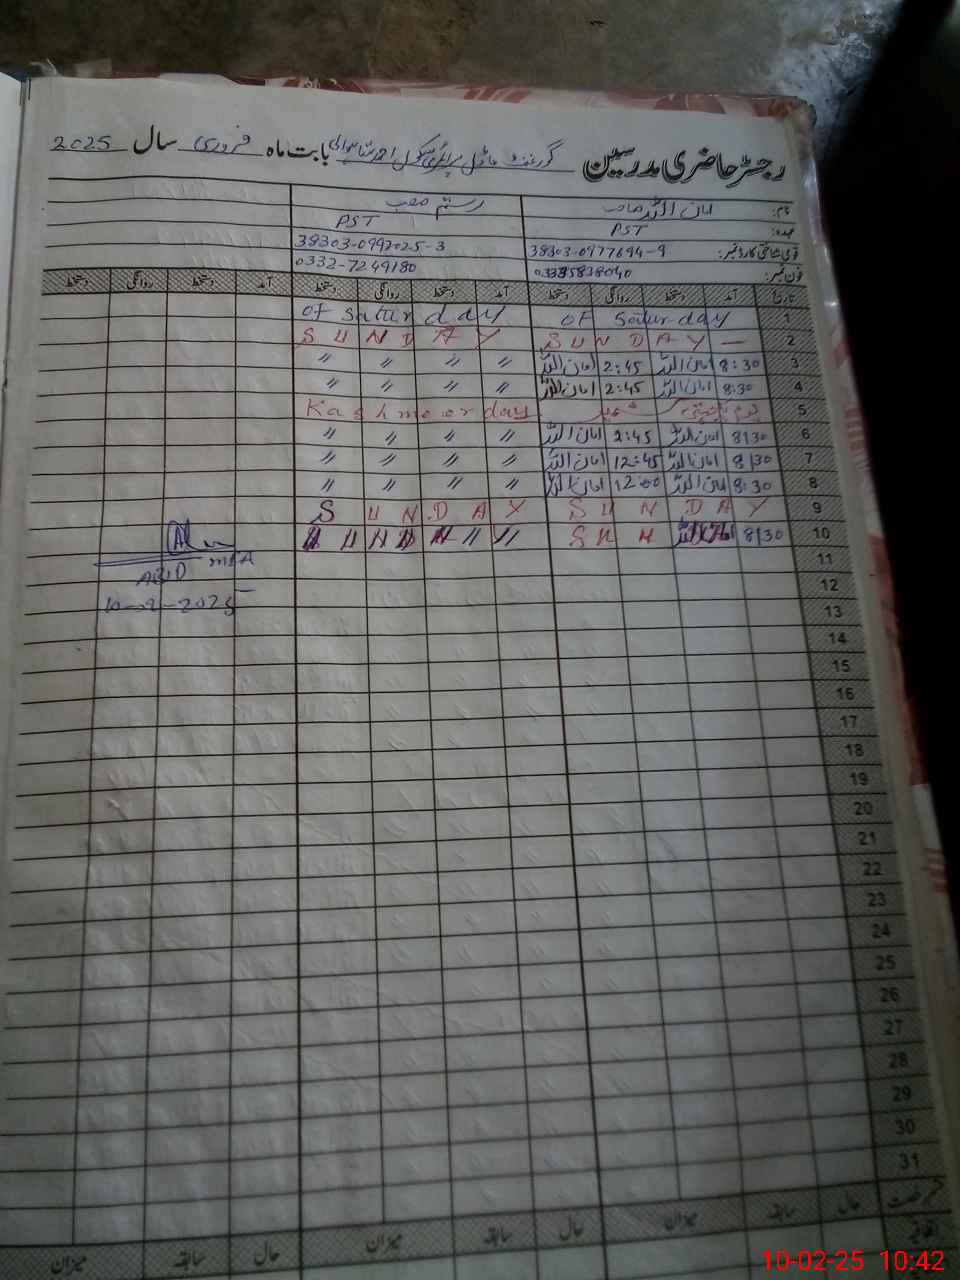 رجسٹر حاضری مدرسین گورنمنٹ ماڈل پرائمری سکول بابت ماہ فروری سال 2025
نام: امان اللہ صاحب رستم
عہدہ: PST PST
قومی شناختی کارڈ نمبر: 38303-0977694-9 38303-0992025-3
فون نمبر: 0332-7249180
تاریخ آمد دستخط روانگی دستخط آمد دستخط روانگی دستخط آمد دستخط روانگی دستخط
1 OF Saturday of Saturday
2 SUNDAY — SUNDAY
3 8:30 امان اللہ 2:45 امان اللہ " " " "
4 8:30 امان اللہ 2:45 امان اللہ " " " "
5 یوم یکجہتی کشمیر Kashmeer day
6 8/30 امان اللہ 2:45 امان اللہ " " " "
7 8/30 امان اللہ 12:45 امان اللہ " " " "
8 8:30 امان اللہ 12:00 امان اللہ " " " "
9 SUNDAY SUNDAY
10 8/30
11 MEA
12
13
14
15
16
17
18
19
20
21
22
23
24
25
26
27
28
29
30
31
حال سابقہ میزان حال سابقہ میزان حال سابقہ میزان
10-02-25 10:42